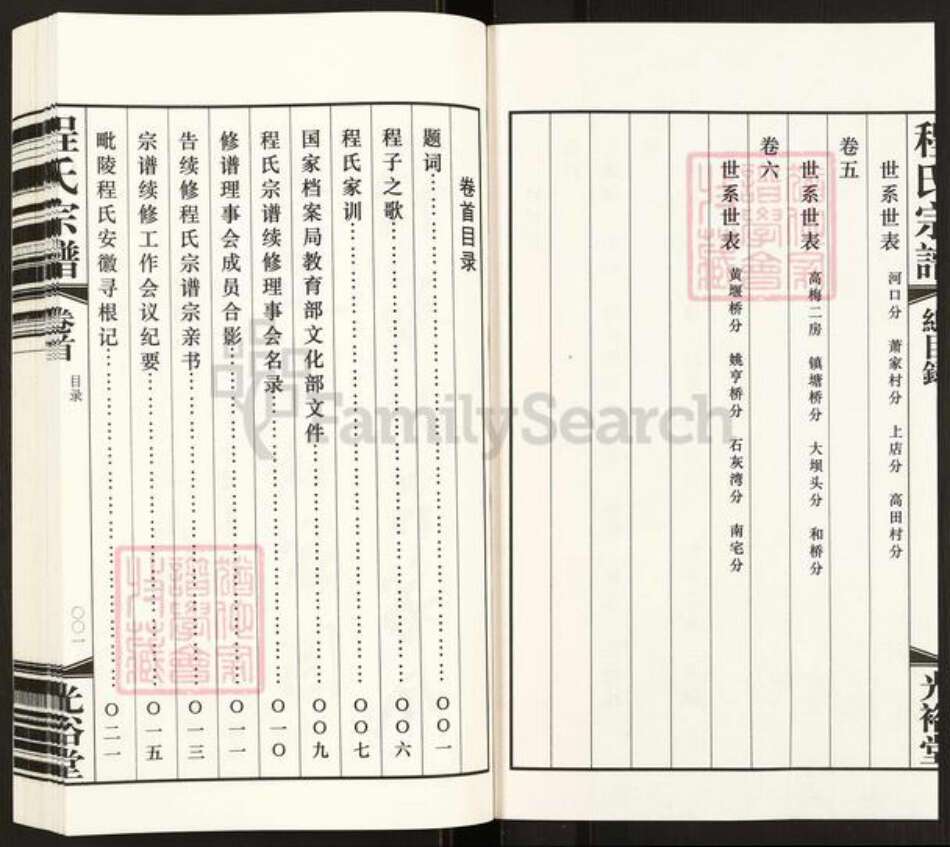 程氏宗譜
總目錄
光裕堂
世系世表 河口分 萧家村分 上店分 高田村分
卷五
世系世表 高梅二房 镇塘桥分 大坝头分 和桥分
卷六
世系世表 黄堰桥分 姚亨桥分 石灰湾分 南宅分
卷首目录
题词……〇〇一
程子之歌……〇〇六
程氏家训……〇〇七
国家档案局教育部文化部文件……〇〇九
程氏宗谱续修理事会名录……〇一〇
修谱理事会成员合影……〇一一
告续修程氏宗谱宗亲书……〇一三
宗谱续修工作会议纪要……〇一五
毗陵程氏安徽寻根记……〇二一
程氏宗譜
卷首
目录
〇〇一
光裕堂
FamilySearch